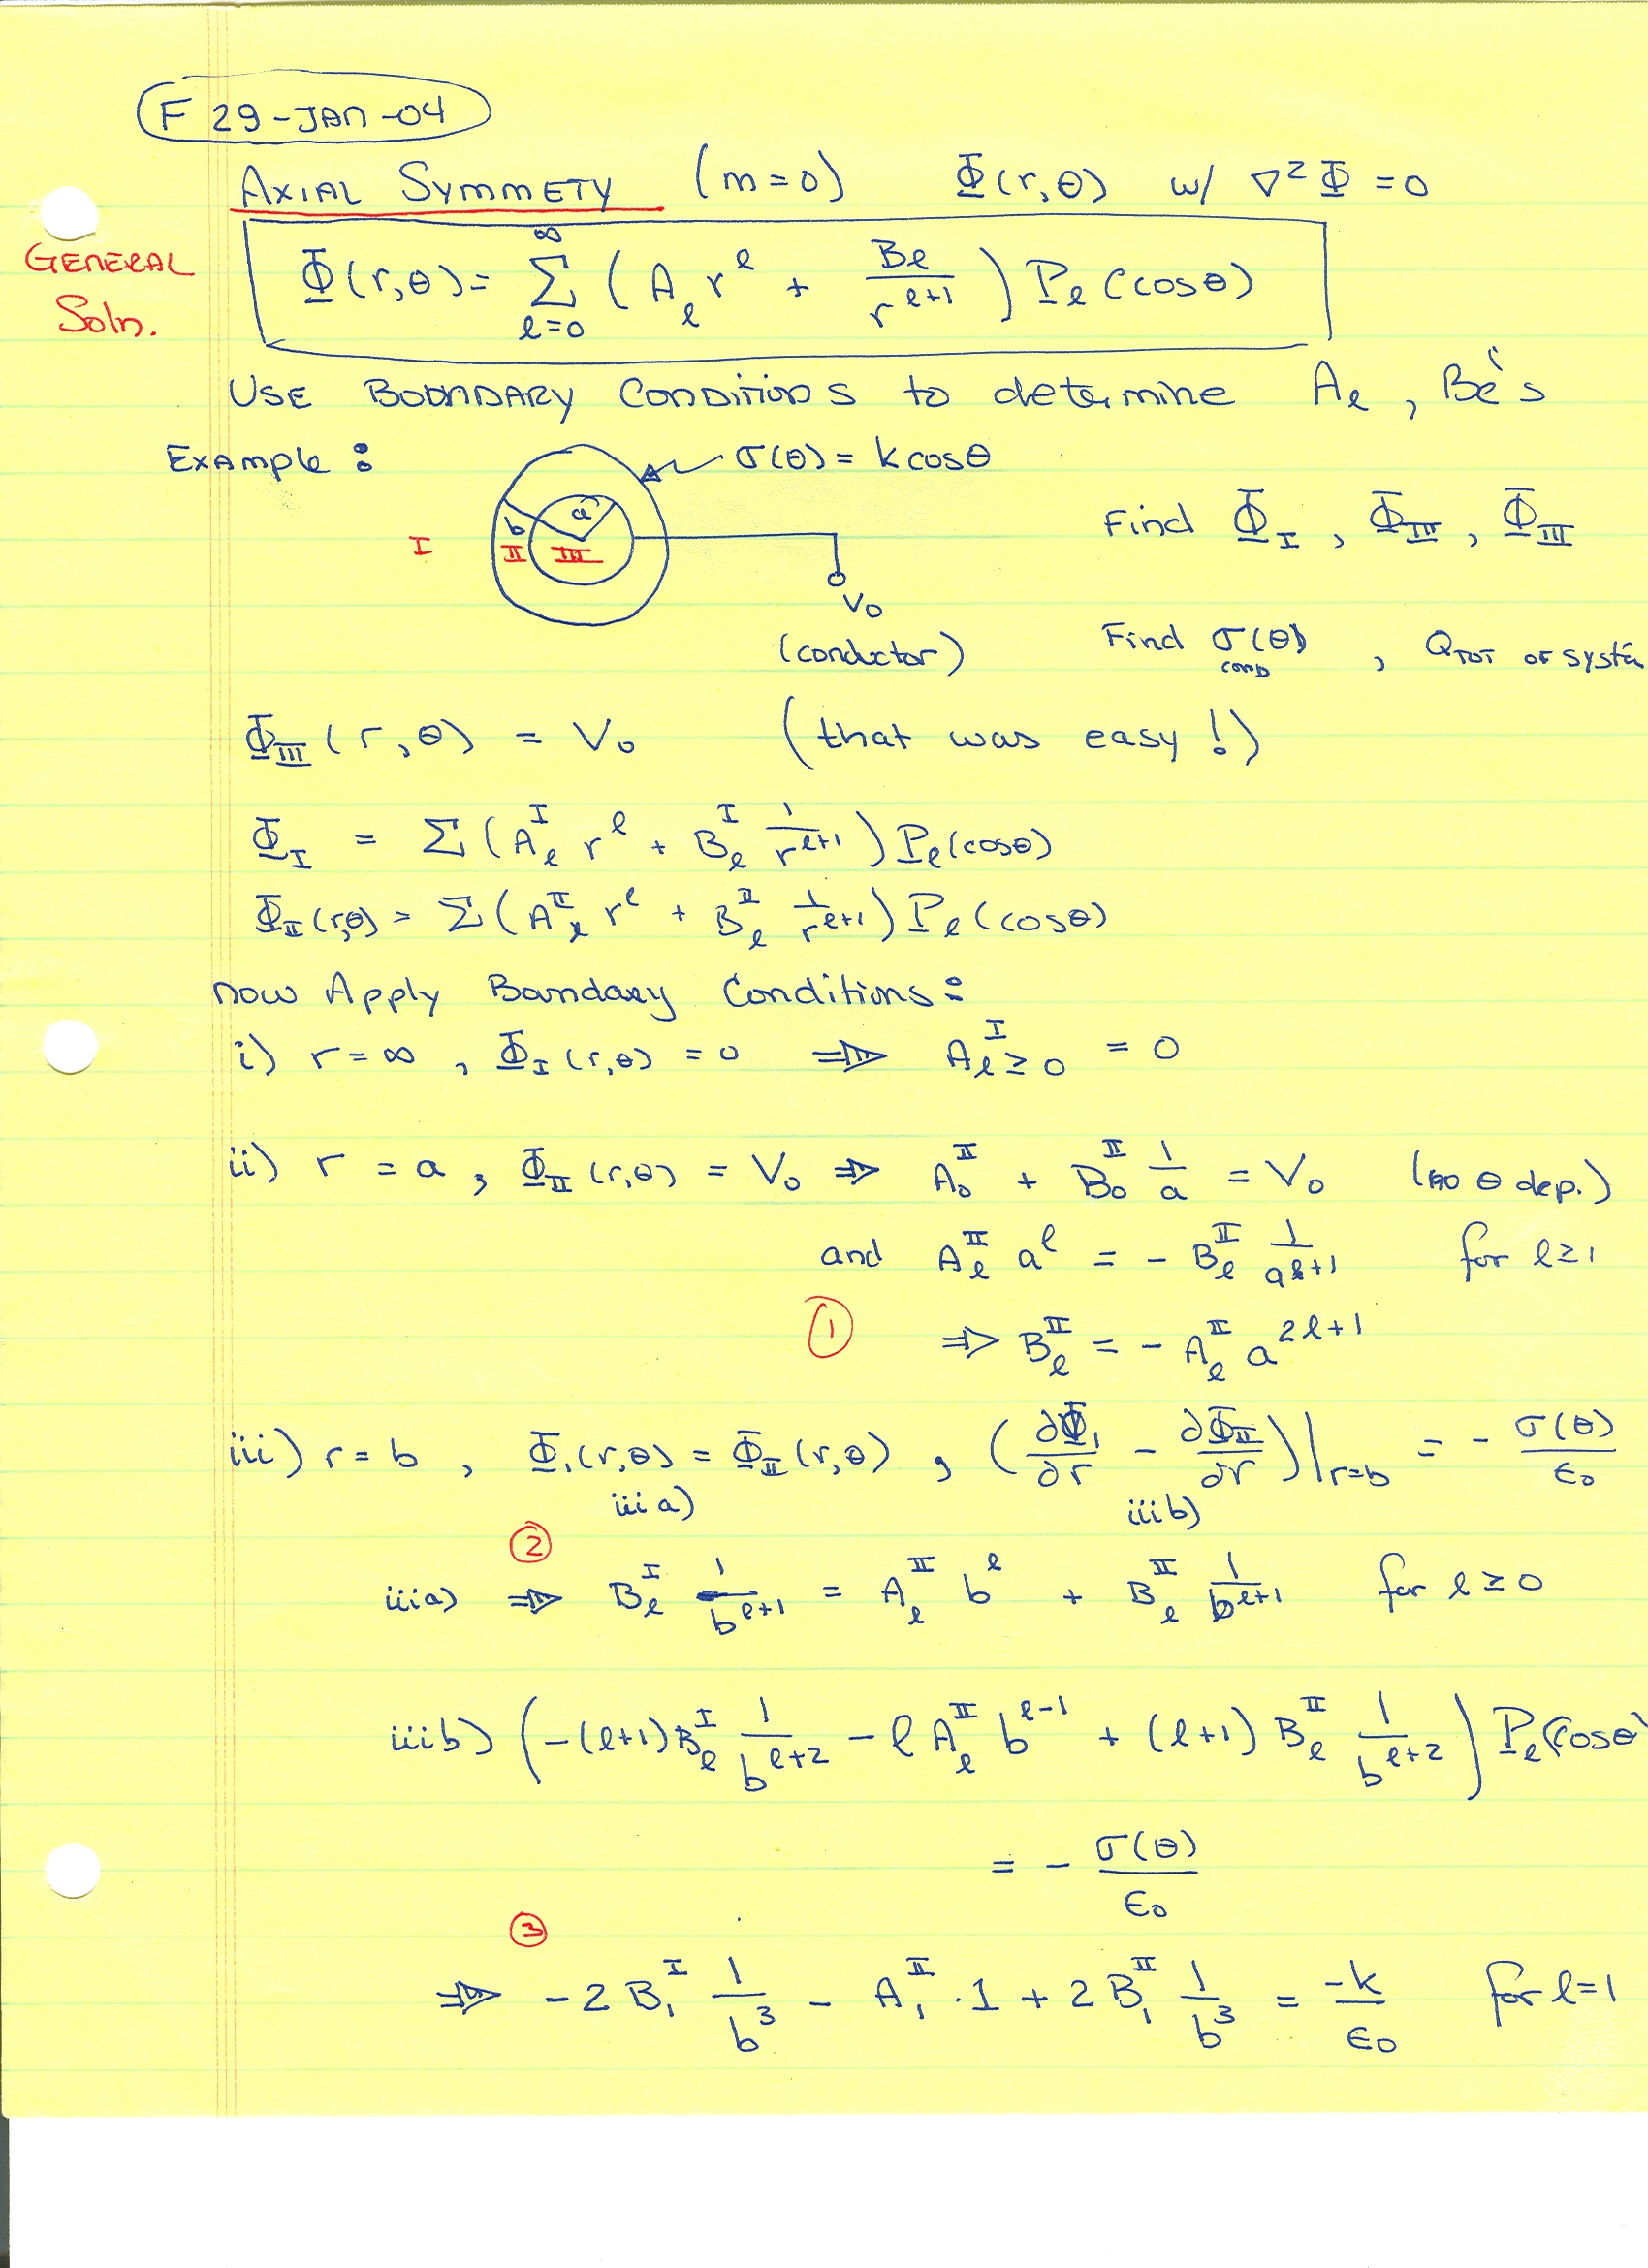 F 29-JAN-04
AXIAL SYMMETY (m=0) Φ(r,θ) w/ ∇²Φ = 0
GENERAL
Soln.
Φ(r,θ) = Σ_{ℓ=0}^{∞} (A_ℓ r^ℓ + B_ℓ / r^{ℓ+1}) P_ℓ(cosθ)
USE BOUNDARY CONDITIONS to determine A_ℓ, B_ℓ's
EXAMPLE :
σ(θ) = k cosθ
a
b
I
II
III
V₀
(conductor)
Find Φ_I, Φ_III, Φ_III
Find σ(θ)
COND
, Q_TOT OF SYSTEM
Φ_III(r,θ) = V₀ (that was easy!)
Φ_I = Σ(A_ℓ^I r^ℓ + B_ℓ^I 1/r^{ℓ+1}) P_ℓ(cosθ)
Φ_II(r,θ) = Σ(A_ℓ^II r^ℓ + B_ℓ^II 1/r^{ℓ+1}) P_ℓ(cosθ)
now Apply Boundary Conditions:
i) r=∞, Φ_I(r,θ) = 0 ⇒ A_{ℓ≥0}^I = 0
ii) r = a, Φ_II(r,θ) = V₀ ⇒ A₀^II + B₀^II 1/a = V₀ (no θ dep.)
and A_ℓ^II a^ℓ = - B_ℓ^II 1/a^{ℓ+1} for ℓ≥1
① ⇒ B_ℓ^II = - A_ℓ^II a^{2ℓ+1}
iii) r = b, Φ_I(r,θ) = Φ_II(r,θ), (∂Φ_I/∂r - ∂Φ_II/∂r)|_{r=b} = - σ(θ)/ε₀
iiia) iiib)
②
iiia) ⇒ B_ℓ^I 1/b^{ℓ+1} = A_ℓ^II b^ℓ + B_ℓ^II 1/b^{ℓ+1} for ℓ≥0
iiib) (-(ℓ+1)B_ℓ^I 1/b^{ℓ+2} - ℓ A_ℓ^II b^{ℓ-1} + (ℓ+1) B_ℓ^II 1/b^{ℓ+2}) P_ℓ(cosθ)
= - σ(θ)/ε₀
③
⇒ -2 B₁^I 1/b³ - A₁^II · 1 + 2 B₁^II 1/b³ = -k/ε₀ for ℓ=1